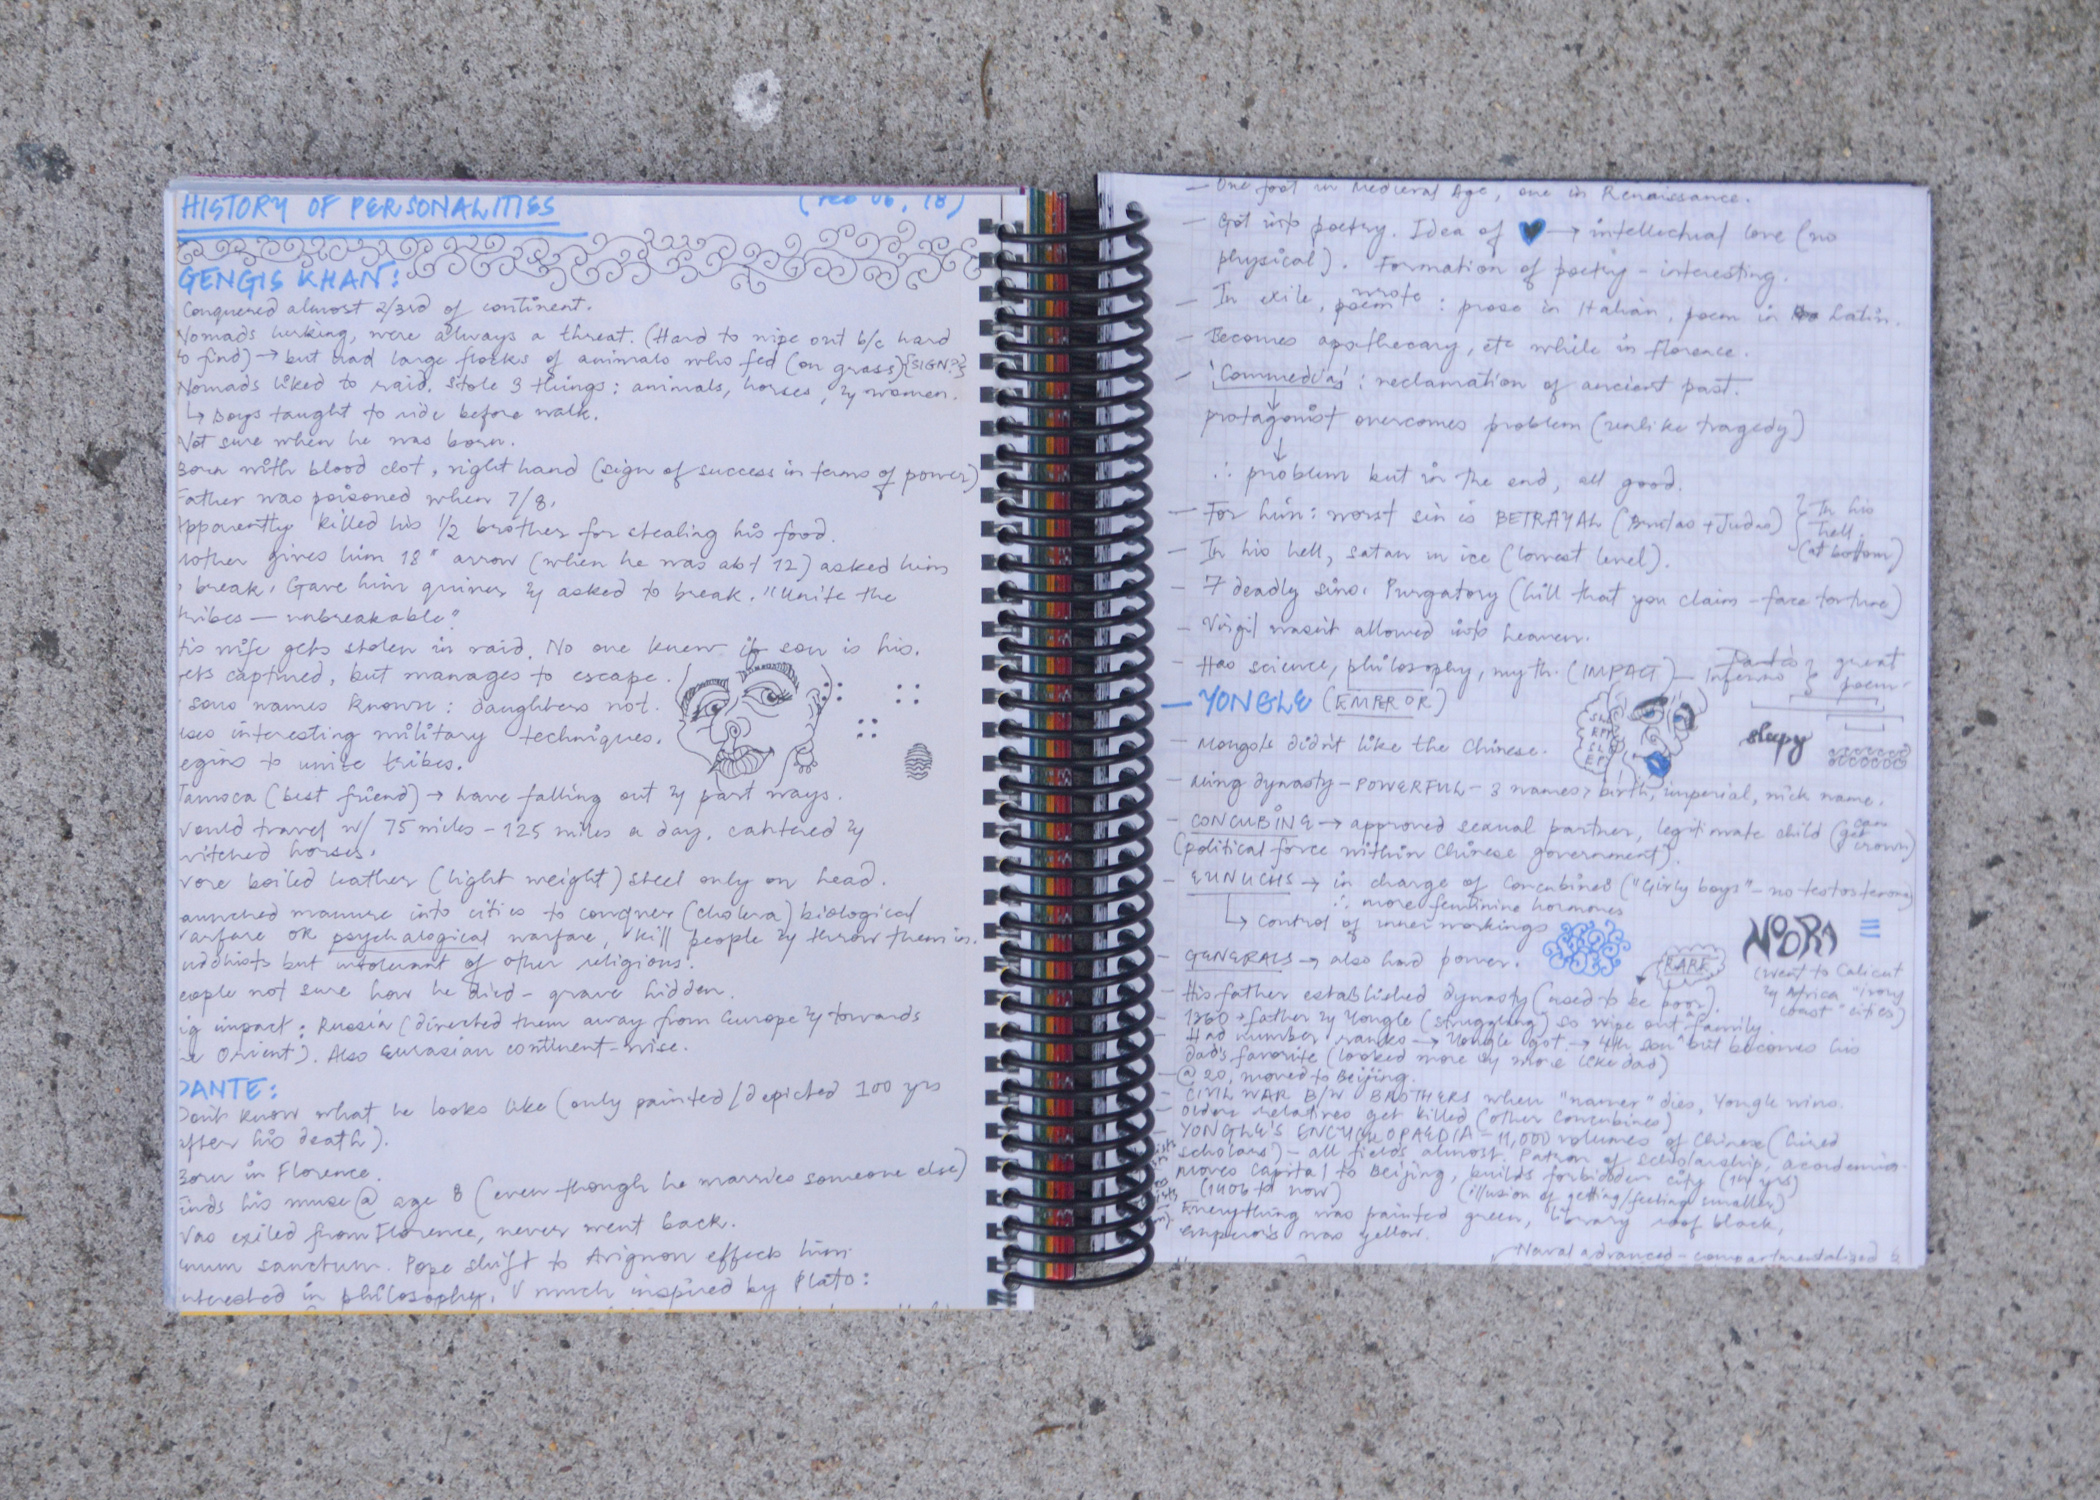 HISTORY OF PERSONALITIES (Feb 06, 18)
GENGIS KHAN:
Conquered almost 2/3rd of continent.
Nomads lurking, were always a threat. (Hard to wipe out b/c hard
to find) → but had large flocks of animals who fed (on grass) {SIGN?}
Nomads liked to raid, stole 3 things: animals, horses, & women.
↳ Boys taught to ride before walk.
Not sure when he was born.
Born with blood clot, right hand (sign of success in terms of power)
Father was poisoned when 7/8.
Apparently killed his 1/2 brother for stealing his food.
Mother gives him 18" arrow (when he was abt 12) asked him
break. Gave him quiver & asked to break. "Unite the
tribes — unbreakable"
His wife gets stolen in raid. No one knew if son is his.
gets captured, but manages to escape.
sons names known: daughters not.
uses interesting military techniques.
egins to unite tribes.
Jamoca (best friend) → have falling out & part ways.
Would travel w/ 75 miles - 125 miles a day, cantered &
switched horses.
Wore boiled leather (light weight) steel only on head.
aunched manure into cities to conquer (cholera) biological
warfare OR psychalogical warfare, kill people & throw them in.
uddhists but intolerant of other religions.
eople not sure how he died - grave hidden.
ig impact: Russia (directed them away from Europe & towards
Orient). Also Eurasian continent-wise.
DANTE:
Don't know what he looks like (only painted/depicted 100 yrs
after his death).
Born in Florence.
Finds his muse @ age 8 (even though he marries someone else)
Was exiled from Florence, never went back.
unum sanctum. Pope shift to Avignon effects him.
nterested in philosophy, V much inspired by Plato:
- One foot in Medieval Age, one in Renaissance.
- Got into poetry. Idea of ♥ → intellectual love (no
physical). Formation of poetry - interesting.
- In exile, wrote poem: prose in Italian, poem in Latin.
- Becomes apothecary, etc while in Florence.
- 'Commedias': reclamation of ancient past.
protagonist overcomes problem (unlike tragedy)
∴ problem but in the end, all good.
- For him: worst sin is BETRAYAL (Brutus + Judas) } In his
hell.
(at bottom)
- In his hell, satan in ice (lowest level).
- 7 deadly sins. Purgatory (hill that you claim - face torture)
- Virgil wasn't allowed into heaven.
- Has science, philosophy, myth. (IMPACT) - Dante's Inferno } great
poem.
- YONGLE (EMPEROR)
SLE
EPY
SLE
EP
sleepy
- Mongols didn't like the Chinese.
- Ming dynasty - POWERFUL - 3 names > birth, imperial, nick name.
- CONCUBINE → approved sexual partner, legitimate child (can get crown)
(political force within Chinese government).
- EUNUCHS → in charge of concubines ("Girly boys" - no testosterone)
∴ more feminine hormones
↳ control of inner workings
NOORA
- GENERALS → also had power.
RARE
(went to Calicut
& Africa "ivory
coast" cities)
- His father established dynasty (used to be poor).
- 1360 → father & Yongle (struggling) so wipe out family.
- Had number ranks → Yongle got → 4th son but becomes his
dad's favorite (looked more & more like dad)
- @ 20, moved to Beijing.
- CIVIL WAR B/W BROTHERS when "namer" dies, Yongle wins.
- older relatives get killed (other concubines)
- YONGLE'S ENCYCLOPAEDIA - 11,000 volumes of Chinese (hired
scholars) - all fields almost. Patron of scholarship, academics.
- Moves Capital to Beijing, builds forbidden city (14 yrs)
(1406 to now) (illusion of getting/feeling smaller)
- Everything was painted green, library roof black,
emperor's was yellow.
Naval advanced - compartmentalized